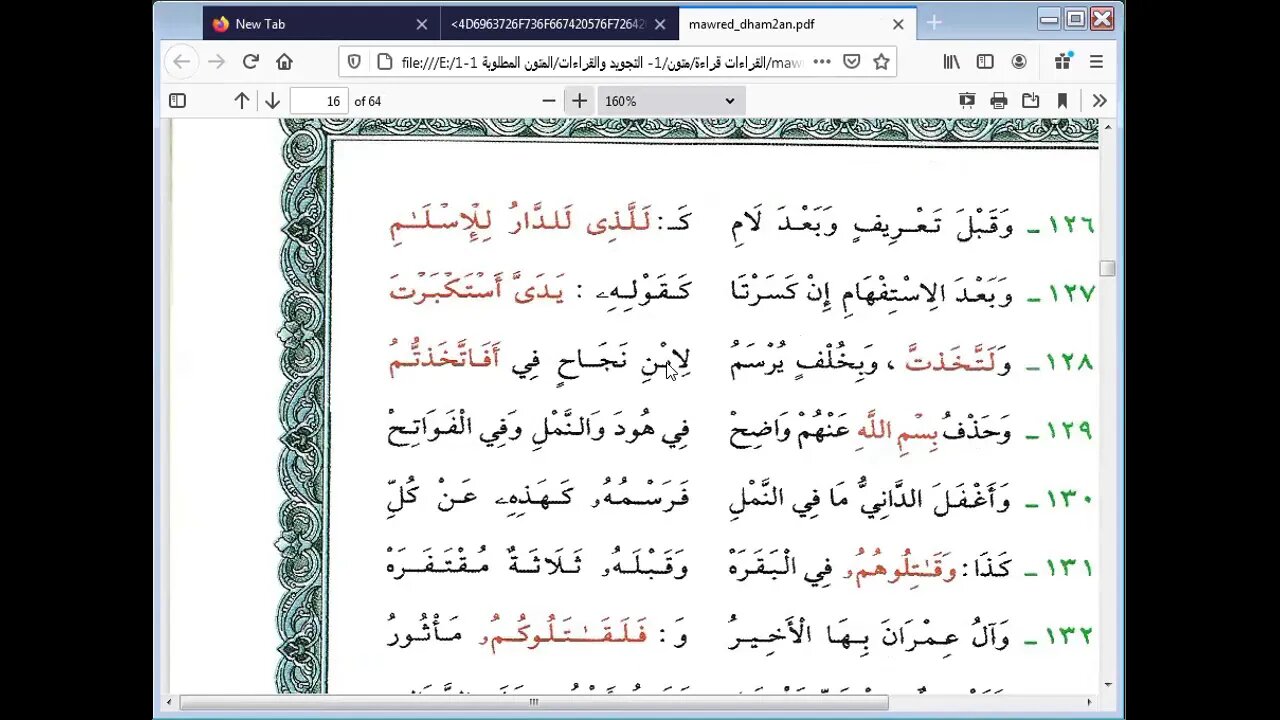 New Tab
<4D6963726F736F667420576F72642
mawred_dham2an.pdf
file:///E:/القراءات قراءة/متون/1- التجويد والقراءات/المتون المطلوبة 1-1/maw
16 of 64
160%
١٢٦ـ وَقَبْلَ تَعْرِيفٍ وَبَعْدَ لَامِ كَـ: لَلَّذِى لَلدَّارُ لِلْإِسْلَـٰمِ
١٢٧ـ وَبَعْدَ الِاسْتِفْهَامِ إِنْ كَسَرْتَا كَقَوْلِهِۦ : يَدَىَّ أَسْتَكْبَرْتَ
١٢٨ـ وَلَتَّخَذتَّ ، وَبِخُلْفٍ يُرْسَمُ لِابْنِ نَجَاحٍ فِي أَفَاتَّخَذتُّمُ
١٢٩ـ وَحَذْفُ بِسْمِ اللَّهِ عَنْهُمْ وَاضِحْ فِي هُودَ وَالنَّمْلِ وَفِي الْفَوَاتِحْ
١٣٠ـ وَأَغْفَلَ الدَّانِيُّ مَا فِي النَّمْلِ فَرَسْمُهُۥ كَهَذِهِۦ عَنْ كُلِّ
١٣١ـ كَذَا: وَقَـٰتِلُوهُمُۥ فِي الْبَقَرَهْ وَقَبْلَهُۥ ثَلَاثَةٌ مُقْتَفَرَهْ
١٣٢ـ وَآلُ عِمْرَانَ بِهَا الْأَخِيرُ وَ: فَلَقَـٰتَلُوكُمُۥ مَأْثُورُ